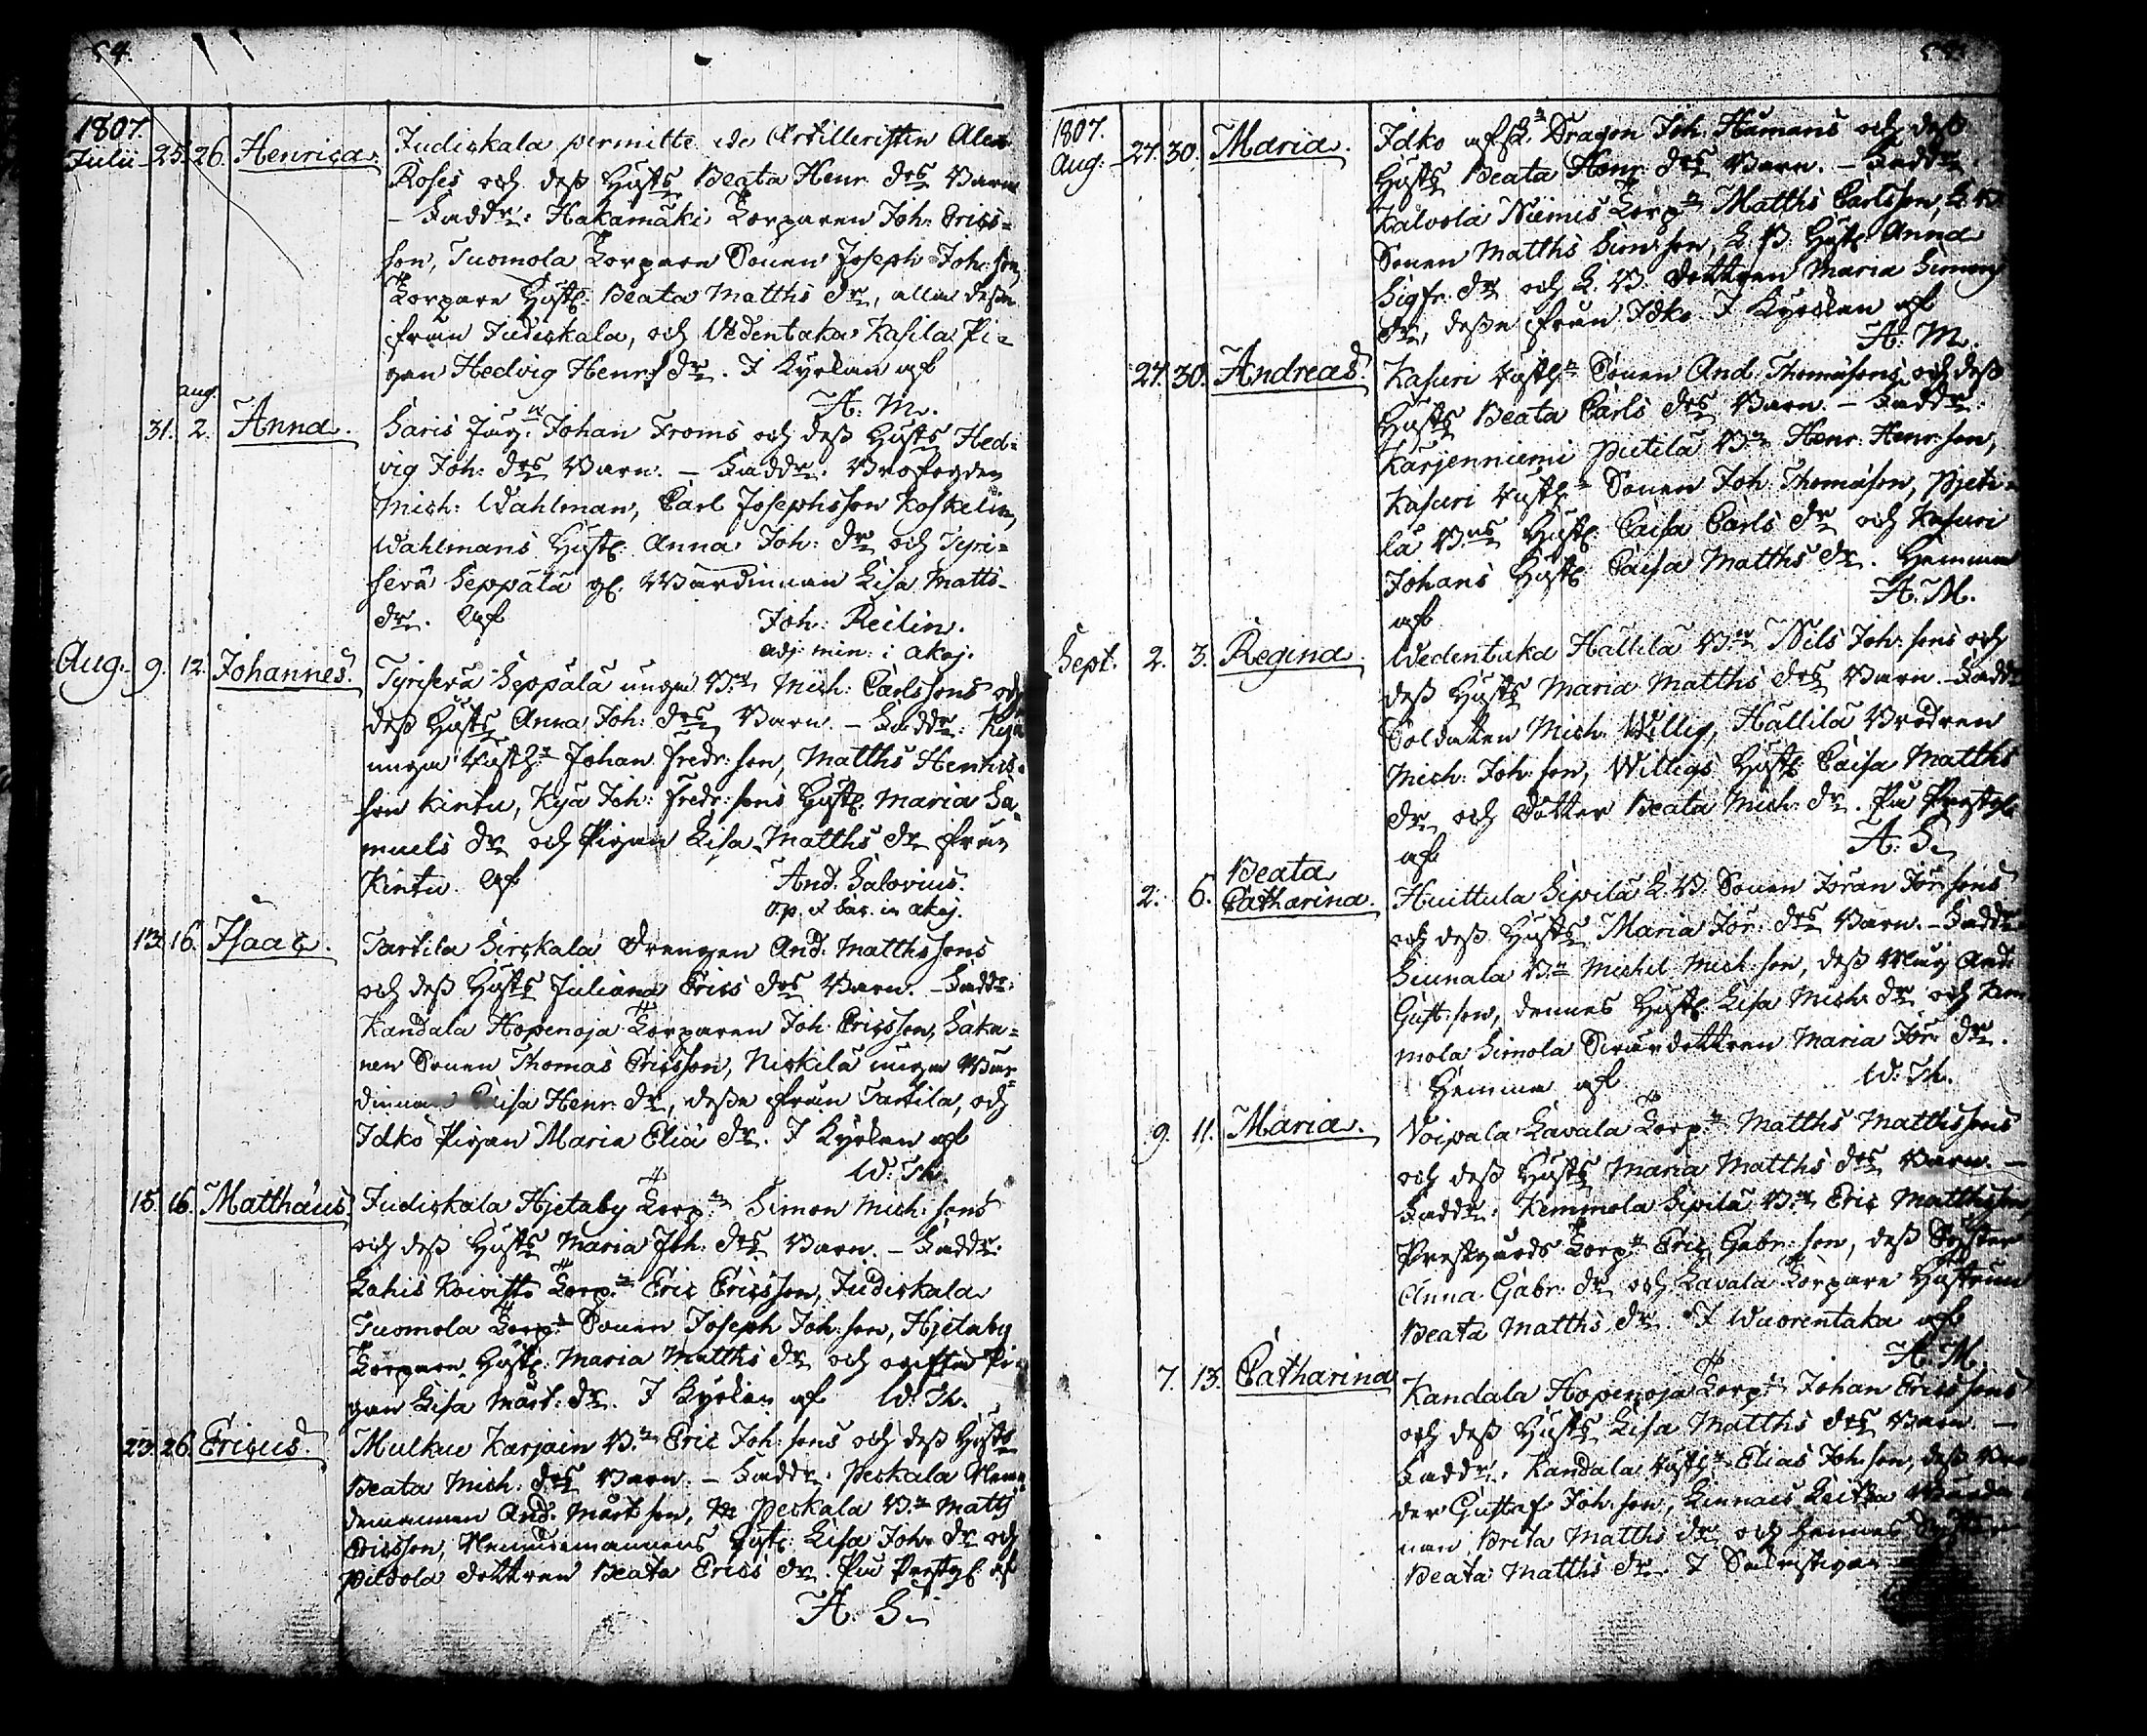 54.
1807.
Julii 25. 26. Henrica. Judickala permitterade Artilleristen Alex
Roses och dess Hustrs Beata Henr. drs Barn
– Faddr: Hakamäki Torparen Joh: Erics=
son, Tuomola Torpare Sonen Joseph Joh: son,
Torpare Hust: Beata Matths dr, alla desse
från Judickala, och Wedentaka Kasila Pi=
gan Hedvig Henrs dr. I Kyrkan af
A: M.
aug.
31. 2. Anna. Saris Johan Froms och dess Hustrs Hed=
vig Joh: drs Barn. – Faddr: Brofogden
Mich: Wahlman, Carl Josephsson Koskelin,
Wahlmans Hust: Anna Joh: dr och Tyri=
sevä Seppälä gl. Wärdinnan Lisa Matts-
dr. af Joh: Reilin.
adj: min: i akaj.
Aug. 9. 12. Johannes. Tyrisevä Seppälä unga B:n Mich: Carlssons och
dess Hustrs Anna Joh: drs Barn. – Faddr: Kyä
unga Johan Fredr: son, Matths Henrics=
son Kintu, Kyä Joh: Fredr: sons Hust: Maria Sa=
muels dr och Pigan Lisa Matths dr från
Kintu. af And: Salovius.
op. & Sac. in akaj.
13. 16. Isaac. Tarttila Sirckala Drengen And: Matthssons
och dess Hustrs Juliana Erics drs Barn. – Faddr:
Kandala Hopenoja Torparen Joh: Ericsson, Saka=
nen Sonen Thomas Ericsson, Nickilä unga Wär=
dinnan Caisa Henr: dr, desse från Tarttila, och
Idko Pigan Maria Eliä dr. I Kyrkan af
W: Th.
15. 16. Matthäus Judickala Hjetaby Torp:n Simon Mich: sons
och dess Hustrs Maria Joh: drs Barn. – Faddr:
Lahis Koivisto Torp:n Eric Ericsson, Judickala
Tuomola Torp:n Sonen Joseph Joh: son, Hjetaby
Torpare Hust: Maria Matths dr och ogifta Pi=
gan Lisa Mårt: dr. I Kyrkan af W: Th.
23. 26. Ericus. Mulkui Karjain B:n Eric Joh: sons och dess Hustrs
Beata Mich: drs Barn – Faddr: Peskala Nem=
demannen And: Mårt:son, Peskala B:n Matts
Ericsson, Nemndemannens Hust: Lisa Joh: dr och
dottren Beata Erics dr. På Prestg: af
A: S.
1807.
Aug. 27. 30. Maria. Idko Dragon Joh: Humans och dess
Hustrs Beata Henr: drs Barn. – Faddr:
Kalvola Niemis Torp:n Matths Carlsson, L. B.
Sonen Matths Sim: son, L. B. Hust: Anna
Sigfr: dr och L. B. dottren Maria Simons
dr, desse från Idko. I Kyrkan af
A: M.
27. 30. Andreas. Kasuri Sonen And: Thomäsons och dess
Hustrs Beata Carls drs Barn. – Faddr:
Karjenniemi B:n Henr: Henr: son,
Kasuri Sonen Joh: Thomäson, Pjeti=
lä B:ns Hust: Caisa Carls dr och Kasuri
Johans Hust: Caisa Matths dr. Hemma
af A: M.
Sept. 2. 3. Regina. Wedentaka Hallila B:n Nils Joh: sons och
dess Hustrs Maria Matths drs Barn. – Faddr
Soldaten Mich: Willig, Hällilä Brodren
Mich: Joh: son, Willigs Hust: Caisa Matths
dr och Dotter Beata Mich: dr. På Prestg:
af A: S.
2. 6. Beata
Catharina. Huittula Sipilä L. B. Sonen Jöran Jör: sons
och dess Hustrs Maria Jör: drs Barn. – Faddr
B:n Michel Mich: son, dess Måg And:
Gust: son, dennes Hust: Lisa Mich: dr och Kem
mola Simola dottren Maria Jör: dr.
Hemma af W: Th.
9. 11. Maria. Voipala Lavala Torp:n Matths Matthssons
och dess Hustrs Maria Matths drs Barn. –
Faddr: Kemmola Sipilä B:n Eric Matthsson,
Prestgårds Torp:n Eric Gabr: son, dess Syster
Anna Gabr: dr och Lavala Torpare Hustrun
Beata Matths dr. I Wuorentaka af
A: M.
7. 13. Catharina Kandala Hopenoja Torp:n Johan Ericssons
och dess Hustrs Lisa Matths drs Barn. –
Faddr: Kandala Elias Joh: son, dess Bro
der Gustaf Joh: son, Linnais Wärdin
nan Brita Matths dr och hennes Syster
Beata Matths dr. I Sakristigan